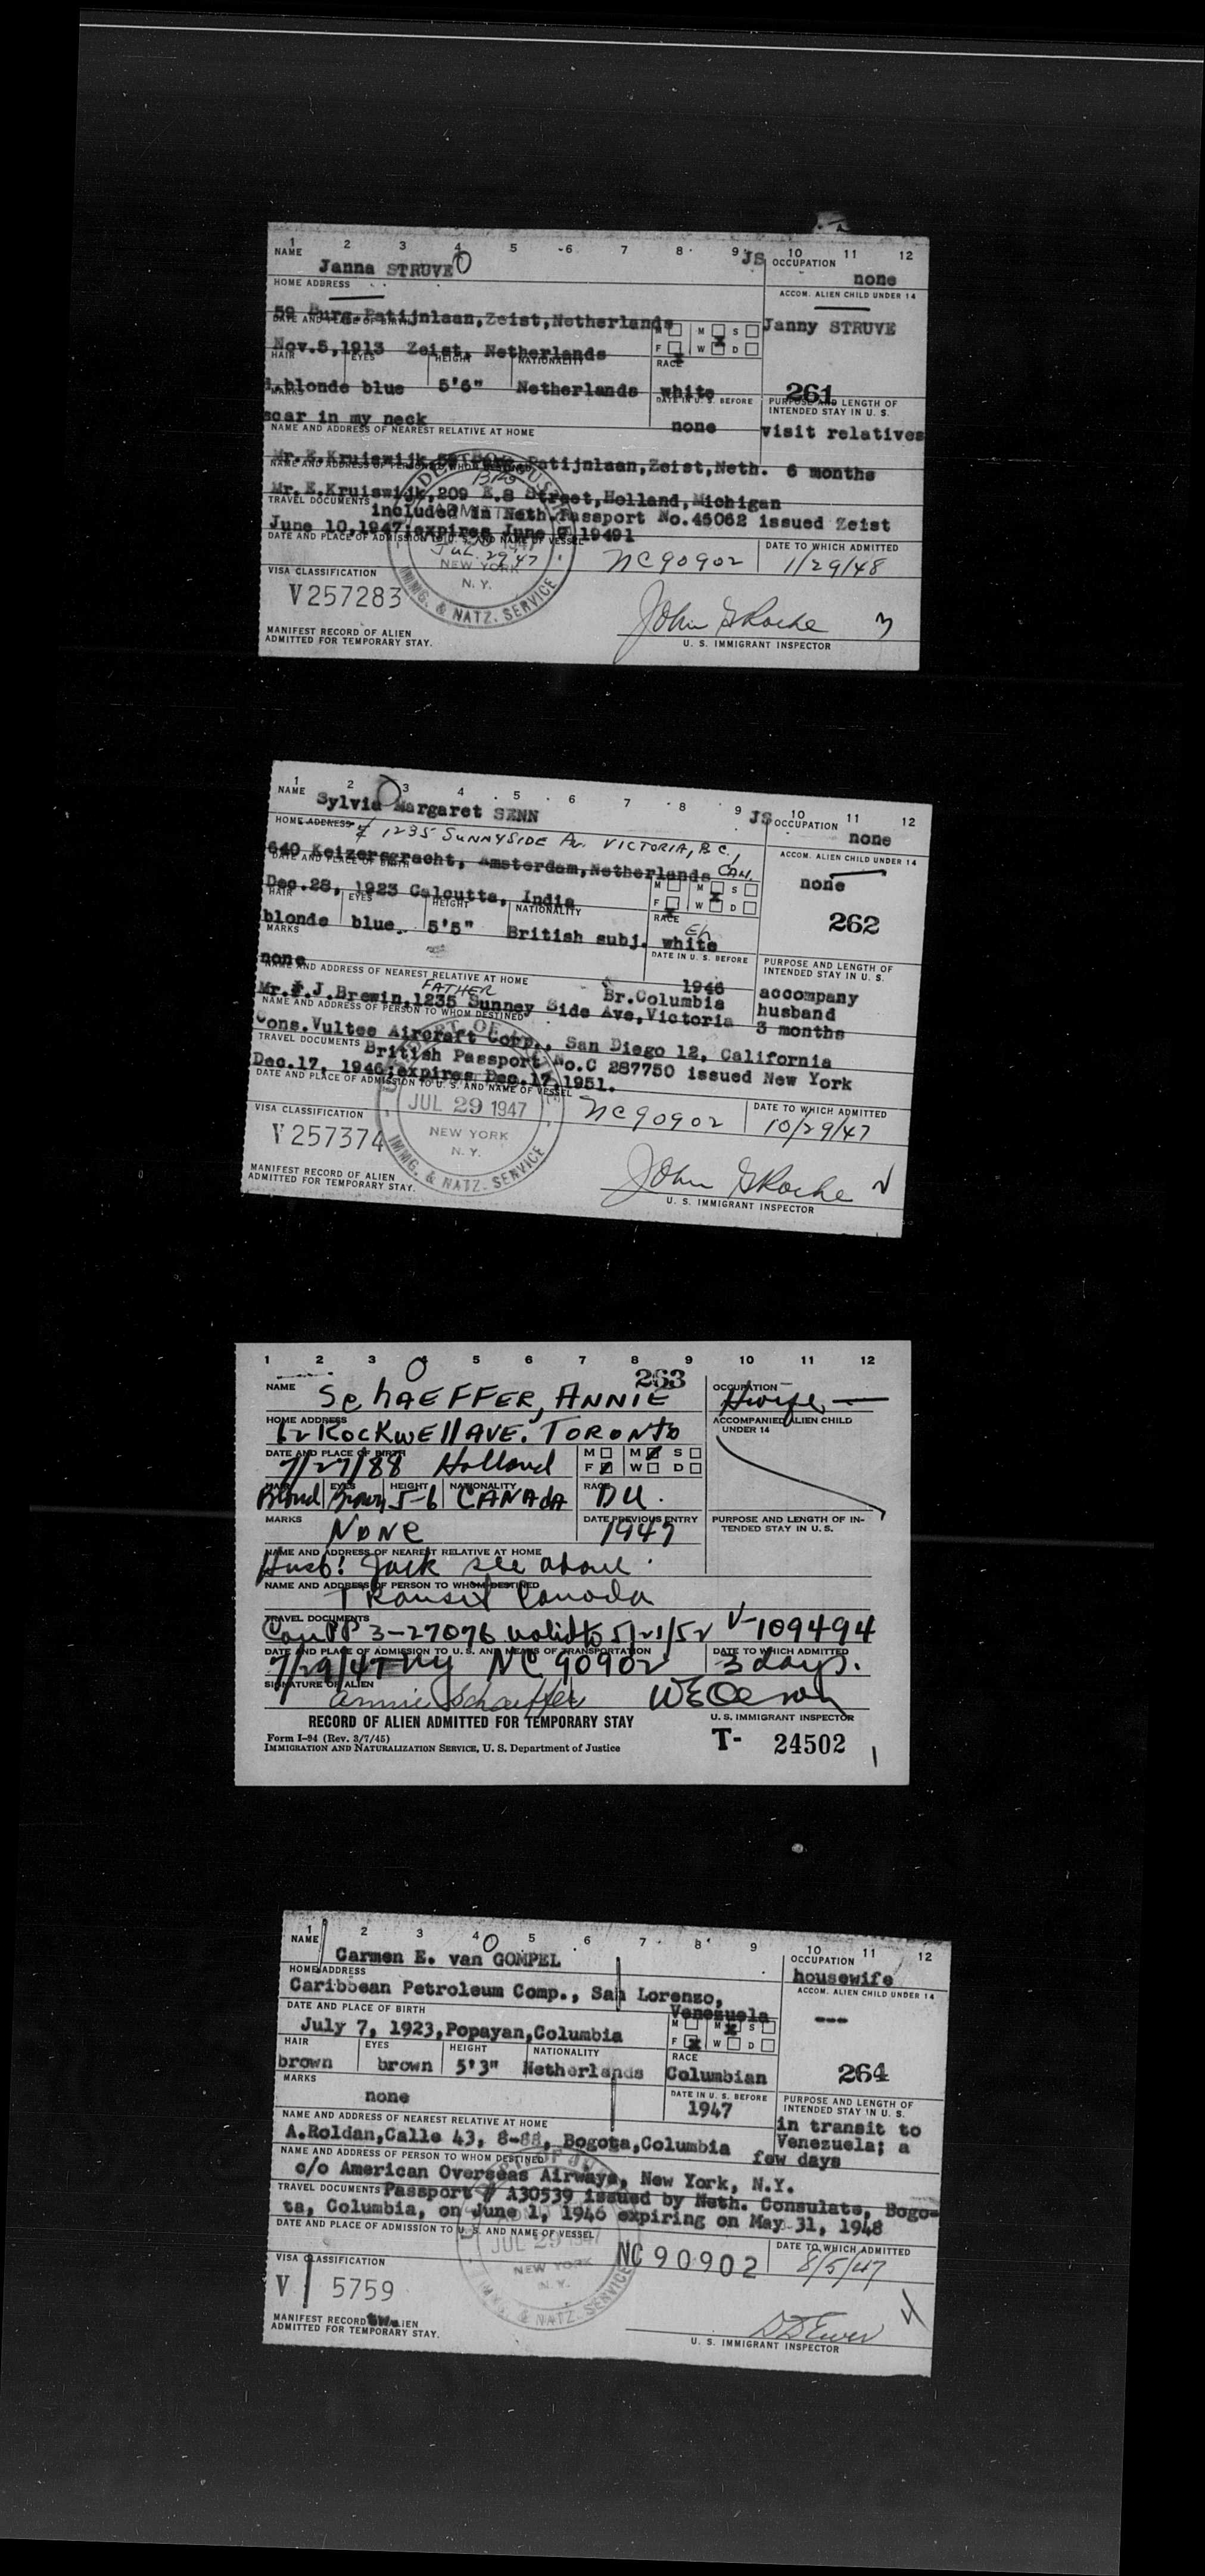 1 2 3 4 5 6 7 8 9 10 11 12
NAME Janna STRUVE JS OCCUPATION none
HOME ADDRESS ACCOM. ALIEN CHILD UNDER 14
59 Burg.Patijnlaan,Zeist,Netherlands Janny STRUVE
DATE AND PLACE OF BIRTH M M S
Nov.5,1913 Zeist, Netherlands F W D
HAIR EYES HEIGHT NATIONALITY RACE
l.blonde blue 5'6" Netherlands white 261
MARKS DATE IN U. S. BEFORE PURPOSE AND LENGTH OF INTENDED STAY IN U. S.
scar in my neck none visit relatives
NAME AND ADDRESS OF NEAREST RELATIVE AT HOME
Mr.E.Kruiswijk Patijnlaan,Zeist,Neth. 6 months
NAME AND ADDRESS OF PERSON TO WHOM DESTINED
Mr.E.Kruiswijk,209 E.8 Street,Holland,Michigan
TRAVEL DOCUMENTS included in Neth.Passport No.45062 issued Zeist
June 10,1947;expires June 9,1949]
DATE AND PLACE OF ADMISSION TO U. S. AND NAME OF VESSEL
JUL 29 47 NC90902 DATE TO WHICH ADMITTED 1/29/48
NEW YORK
N. Y.
IMMG. & NATZ. SERVICE
VISA CLASSIFICATION
V257283
John G Roche 3
MANIFEST RECORD OF ALIEN
ADMITTED FOR TEMPORARY STAY. U. S. IMMIGRANT INSPECTOR
1 2 3 4 5 6 7 8 9 10 11 12
NAME Sylvia Margaret SENN JS OCCUPATION none
HOME ADDRESS 1235 SUNNYSIDE AV. VICTORIA, B.C., CAN. ACCOM. ALIEN CHILD UNDER 14
640 Keizersgracht, Amsterdam,Netherlands none
DATE AND PLACE OF BIRTH M M S
Dec.28, 1923 Calcutta, India F W D 262
HAIR EYES HEIGHT NATIONALITY RACE
Eh
blonde blue. 5'5" British subj. white
MARKS DATE IN U. S. BEFORE PURPOSE AND LENGTH OF INTENDED STAY IN U. S.
none 1946 accompany
NAME AND ADDRESS OF NEAREST RELATIVE AT HOME
FATHER Br.Columbia husband
Mr.F.J.Brewin,1235 Sunney Side Ave,Victoria 3 months
NAME AND ADDRESS OF PERSON TO WHOM DESTINED
Cons.Vultee Aircraft Corp., San Diego 12, California
TRAVEL DOCUMENTS British Passport No.C 287750 issued New York
Dec.17, 1946;expires Dec.17,1951.
DATE AND PLACE OF ADMISSION TO U. S. AND NAME OF VESSEL
JUL 29 1947 NC90902 DATE TO WHICH ADMITTED 10/29/47
NEW YORK
N. Y.
IMMG. & NATZ. SERVICE
VISA CLASSIFICATION
V257374
John G Roche
MANIFEST RECORD OF ALIEN
ADMITTED FOR TEMPORARY STAY. U. S. IMMIGRANT INSPECTOR
1 2 3 4 5 6 7 8 9 10 11 12
263
NAME SCHAEFFER, ANNIE OCCUPATION Hwife
HOME ADDRESS 12 ROCKWELL AVE. TORONTO ACCOMPANIED ALIEN CHILD UNDER 14
DATE AND PLACE OF BIRTH M M S
7/27/88 Holland F W D
HAIR EYES HEIGHT NATIONALITY RACE
Blond Brown 5-6 CANADA DU.
MARKS NONE DATE PREVIOUS ENTRY 1947 PURPOSE AND LENGTH OF INTENDED STAY IN U. S.
NAME AND ADDRESS OF NEAREST RELATIVE AT HOME
Husb: Jack see above.
NAME AND ADDRESS OF PERSON TO WHOM DESTINED
Transit Canada
TRAVEL DOCUMENTS
Can PP 3-27076 valid to 5/21/52 V-109494
DATE AND PLACE OF ADMISSION TO U. S. AND MEANS OF TRANSPORTATION DATE TO WHICH ADMITTED
7/29/47 NY NC 90902 3 days.
SIGNATURE OF ALIEN
Annie Schaeffer
RECORD OF ALIEN ADMITTED FOR TEMPORARY STAY U. S. IMMIGRANT INSPECTOR
Form I-94 (Rev. 3/7/45)
IMMIGRATION AND NATURALIZATION SERVICE, U. S. Department of Justice T- 24502
1 2 3 4 5 6 7 8 9 10 11 12
NAME Carmen E. van GOMPEL OCCUPATION housewife
HOME ADDRESS ACCOM. ALIEN CHILD UNDER 14
Caribbean Petroleum Comp., San Lorenzo, Venezuela ---
DATE AND PLACE OF BIRTH M M S
July 7, 1923,Popayan,Columbia F W D
HAIR EYES HEIGHT NATIONALITY RACE
brown brown 5'3" Netherlands Columbian 264
MARKS DATE IN U. S. BEFORE PURPOSE AND LENGTH OF INTENDED STAY IN U. S.
none 1947 in transit to
NAME AND ADDRESS OF NEAREST RELATIVE AT HOME Venezuela; a
A.Roldan,Calle 43, 8-88, Bogota,Columbia few days
NAME AND ADDRESS OF PERSON TO WHOM DESTINED
c/o American Overseas Airways, New York, N.Y.
TRAVEL DOCUMENTS Passport # A30539 issued by Neth. Consulate, Bogo-
ta, Columbia, on June 1, 1946 expiring on May 31, 1948
DATE AND PLACE OF ADMISSION TO U. S. AND NAME OF VESSEL
JUL 29 1947 NC90902 DATE TO WHICH ADMITTED 8/5/47
NEW YORK
N. Y.
IMMG. & NATZ. SERVICE
VISA CLASSIFICATION
V 5759
MANIFEST RECORD ALIEN
ADMITTED FOR TEMPORARY STAY. U. S. IMMIGRANT INSPECTOR